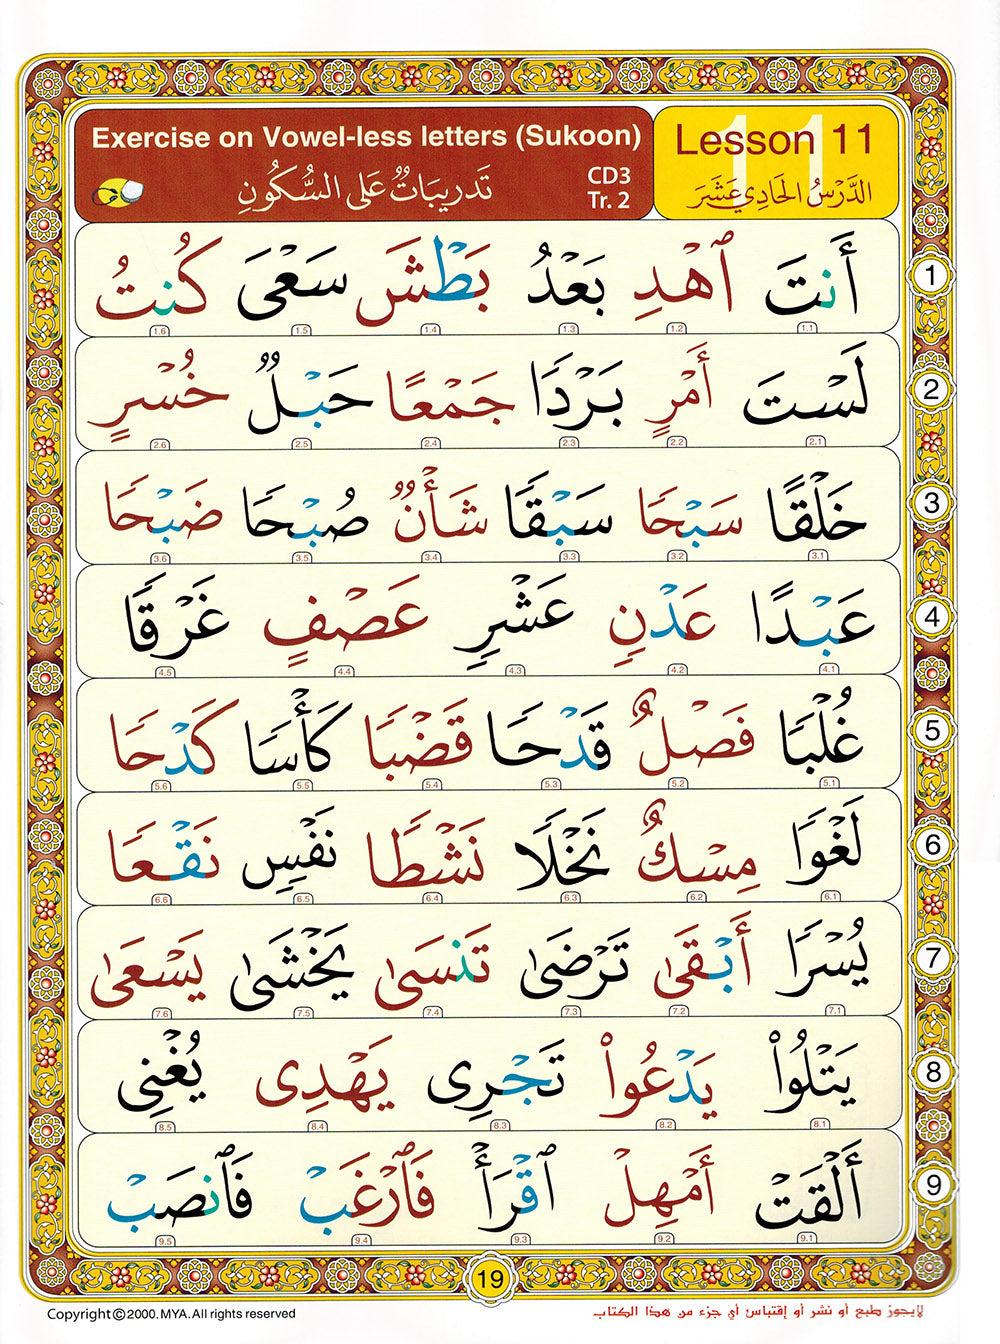 Exercise on Vowel-less letters (Sukoon)
تَدرِيبَاتٌ عَلى السُّكُونِ
CD3
Tr. 2
Lesson 11
الدَّرْسُ الحَادِي عَشَرَ
أَنتَ ٱهْدِ بَعْدُ بَطْشَ سَعْىَ كُنتُ
1
1.1 1.2 1.3 1.4 1.5 1.6
لَسْتَ أَمْرٍ بَرْدًا جَمْعًا حَبْلٌ خُسْرٍ
2
2.1 2.2 2.3 2.4 2.5 2.6
خَلْقًا سَبْحًا سَبْقًا شَأْنٌ صُبْحًا ضَبْحًا
3
3.1 3.2 3.3 3.4 3.5 3.6
عَبْدًا عَدْنٍ عَشْرٍ عَصْفٍ غَرْقًا
4
4.1 4.2 4.3 4.4 4.5
غُلْبًا فَصْلٌ قَدْحًا قَضْبًا كَأْسًا كَدْحًا
5
5.1 5.2 5.3 5.4 5.5 5.6
لَغْوًا مِسْكٌ نَخْلًا نَشْطًا نَفْسٍ نَقْعًا
6
6.1 6.2 6.3 6.4 6.5 6.6
يُسْرًا أَبْقَىٰ تَرْضَىٰ تَنسَىٰ يَخْشَىٰ يَسْعَىٰ
7
7.1 7.2 7.3 7.4 7.5 7.6
يَتْلُواْ يَدْعُواْ تَجْرِى يَهْدِى يُغْنِى
8
8.1 8.2 8.3 8.4 8.5
أَلْقَتْ أَمْهِلْ ٱقْرَأْ فَٱرْغَبْ فَٱنصَبْ
9
9.1 9.2 9.3 9.4 9.5
19
Copyright©2000. MYA. All rights reserved
لايجوز طبع أو نشر أو إقتباس أي جزء من هذا الكتاب